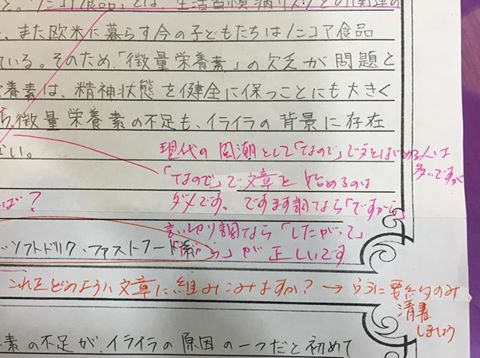 。「ノンコア食品」とは、生活習慣病リスクとの関連の
、また欧米に暮らす今の子どもたちはノンコア食品
ている。そのため、「微量栄養素」の欠乏が問題と
栄養素は、精神状態を健全に保つことにも大きく
、微量栄養素の不足も、イライラの背景に存在
ない。
現代の風潮として「なので」で文をはじめる人は
多いですが
「なので」で文章を始めるのは
ダメです。ですます調なら「ですから」
言い切り調なら「したがって」
が正しいです
ば?
・ソフトドリンク・ファストフード
これをどのように文章に組みこみますか?→うらに要約のみ
清書
しましょう
素の不足が、イライラの原因の一つだと初めて